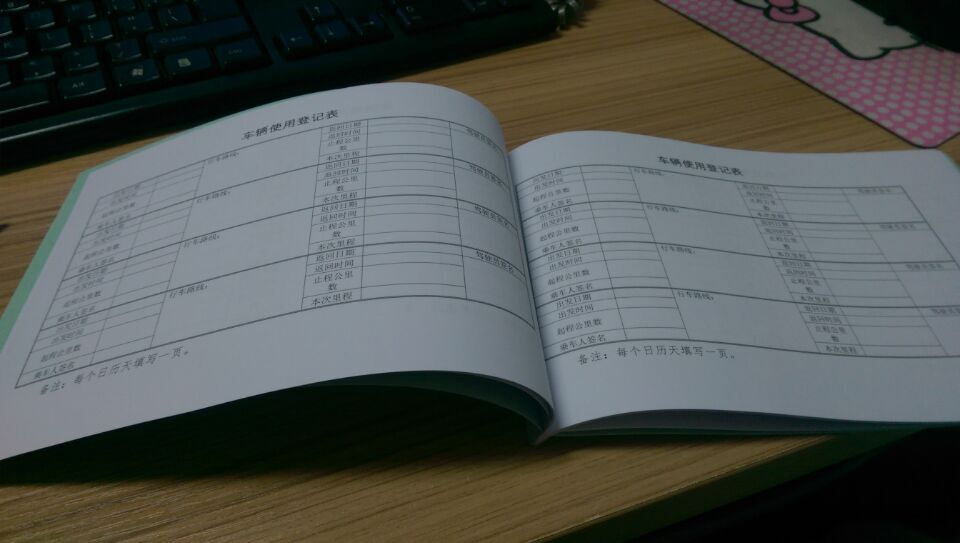 车辆使用登记表
行车路线：
返回日期
驾驶员签名
返回时间
止程公里数
本次里程
行车路线：
返回日期
驾驶员签名
返回时间
起程公里数
止程公里数
乘车人签名
本次里程
出发日期
行车路线：
返回日期
驾驶员签名
出发时间
返回时间
起程公里数
止程公里数
乘车人签名
本次里程
出发日期
行车路线：
返回日期
驾驶员签名
出发时间
返回时间
起程公里数
止程公里数
乘车人签名
本次里程
备注：每个日历天填写一页。
车辆使用登记表
出发日期
行车路线：
返回日期
驾驶员签名
出发时间
返回时间
起程公里数
止程公里数
乘车人签名
本次里程
出发日期
行车路线：
返回日期
驾驶员签名
出发时间
返回时间
起程公里数
止程公里数
乘车人签名
本次里程
出发日期
行车路线：
返回日期
驾驶员签名
出发时间
返回时间
起程公里数
止程公里数
乘车人签名
本次里程
出发日期
行车路线：
返回日期
驾驶员签名
出发时间
返回时间
起程公里数
止程公里数
乘车人签名
本次里程
备注：每个日历天填写一页。